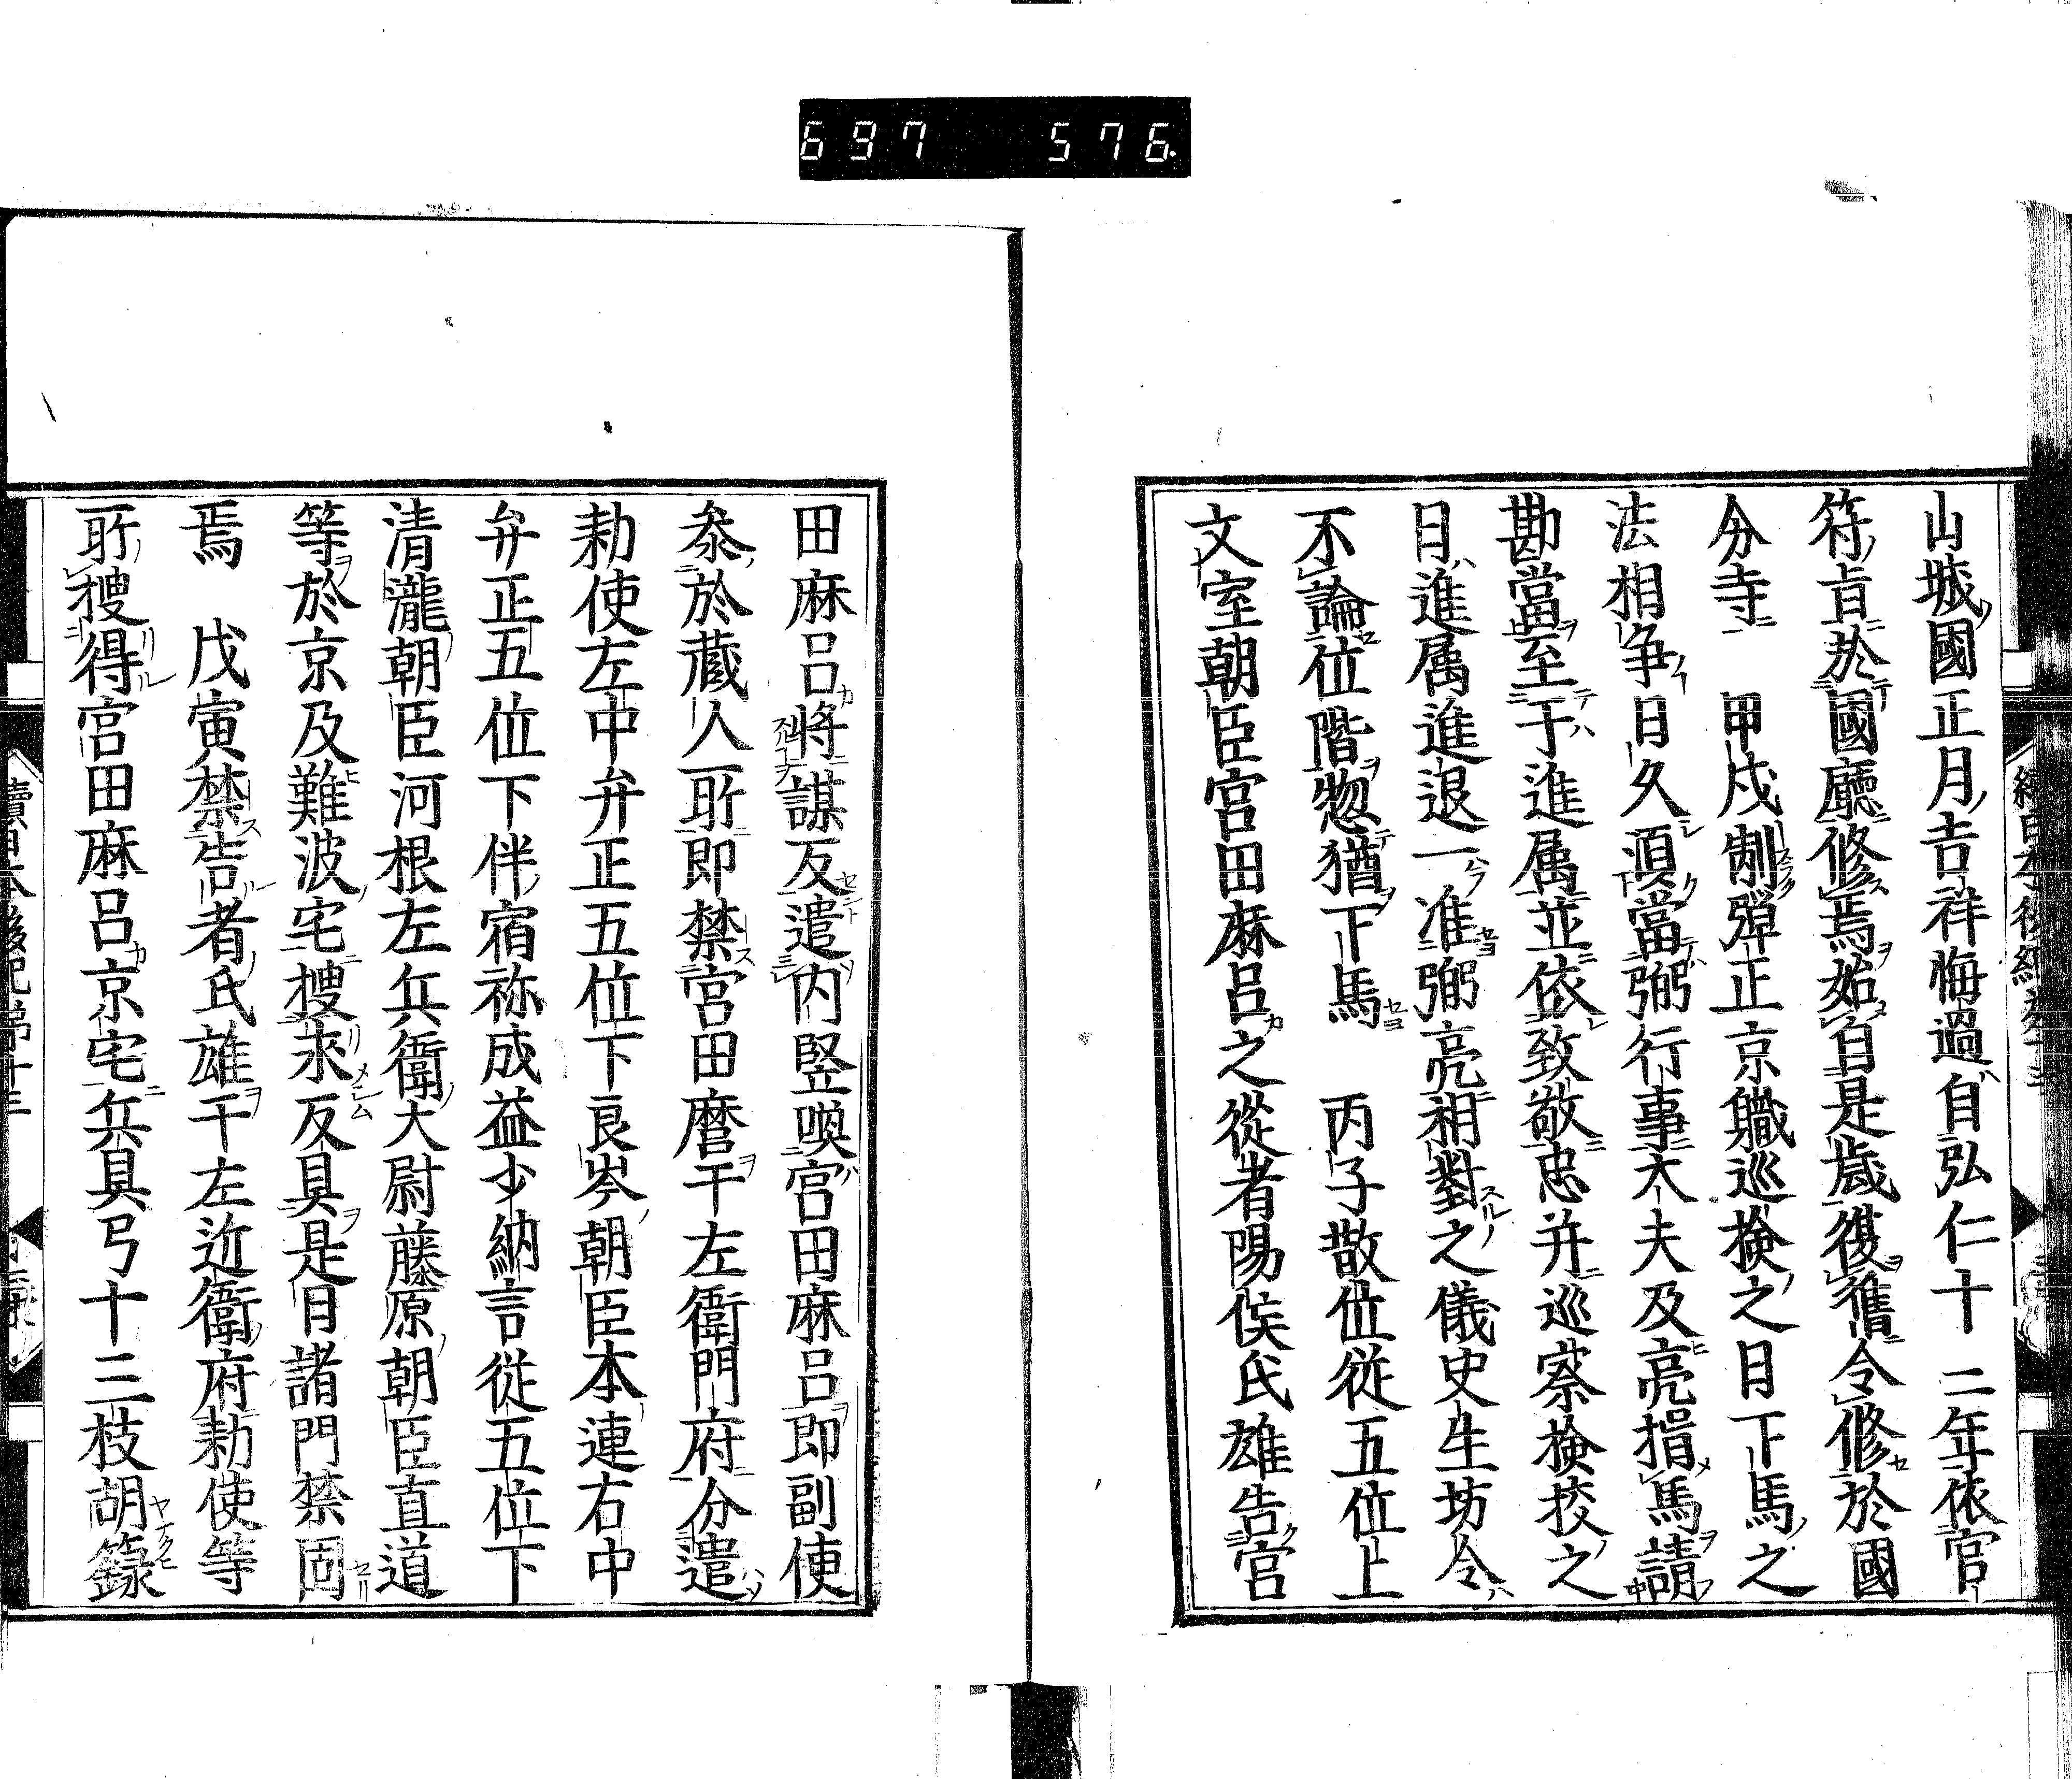 697 576
山城國正月吉祥悔過自弘仁十二年依官
符旨於國廳修焉始自是歲復舊令修於國
分寺 甲戌制彈正京職巡檢之日下馬之
法相爭日久須當弼行事大夫及亮揖馬請
勘當至于進属並依致敬忠并巡察檢挍之
日進属進退一准弼亮相對之儀史生坊令
不論位階惣猶下馬 丙子散位從五位上
文室朝臣宮田麻呂之從者陽侯氏雄告宮
田麻呂將謀反遣内竪喚宮田麻呂即副使
叅於蔵人所即禁宮田麿于左衛門府分遣
勅使左中弁正五位下良岑朝臣木連右中
弁正五位下伴宿祢成益少納言從五位下
清瀧朝臣河根左兵衛大尉藤原朝臣直道
等於京及難波宅搜求反具是日諸門禁固
焉 戊寅禁告者氏雄于左近衛府勅使等
所搜得宮田麻呂京宅兵具弓十三枝胡籙